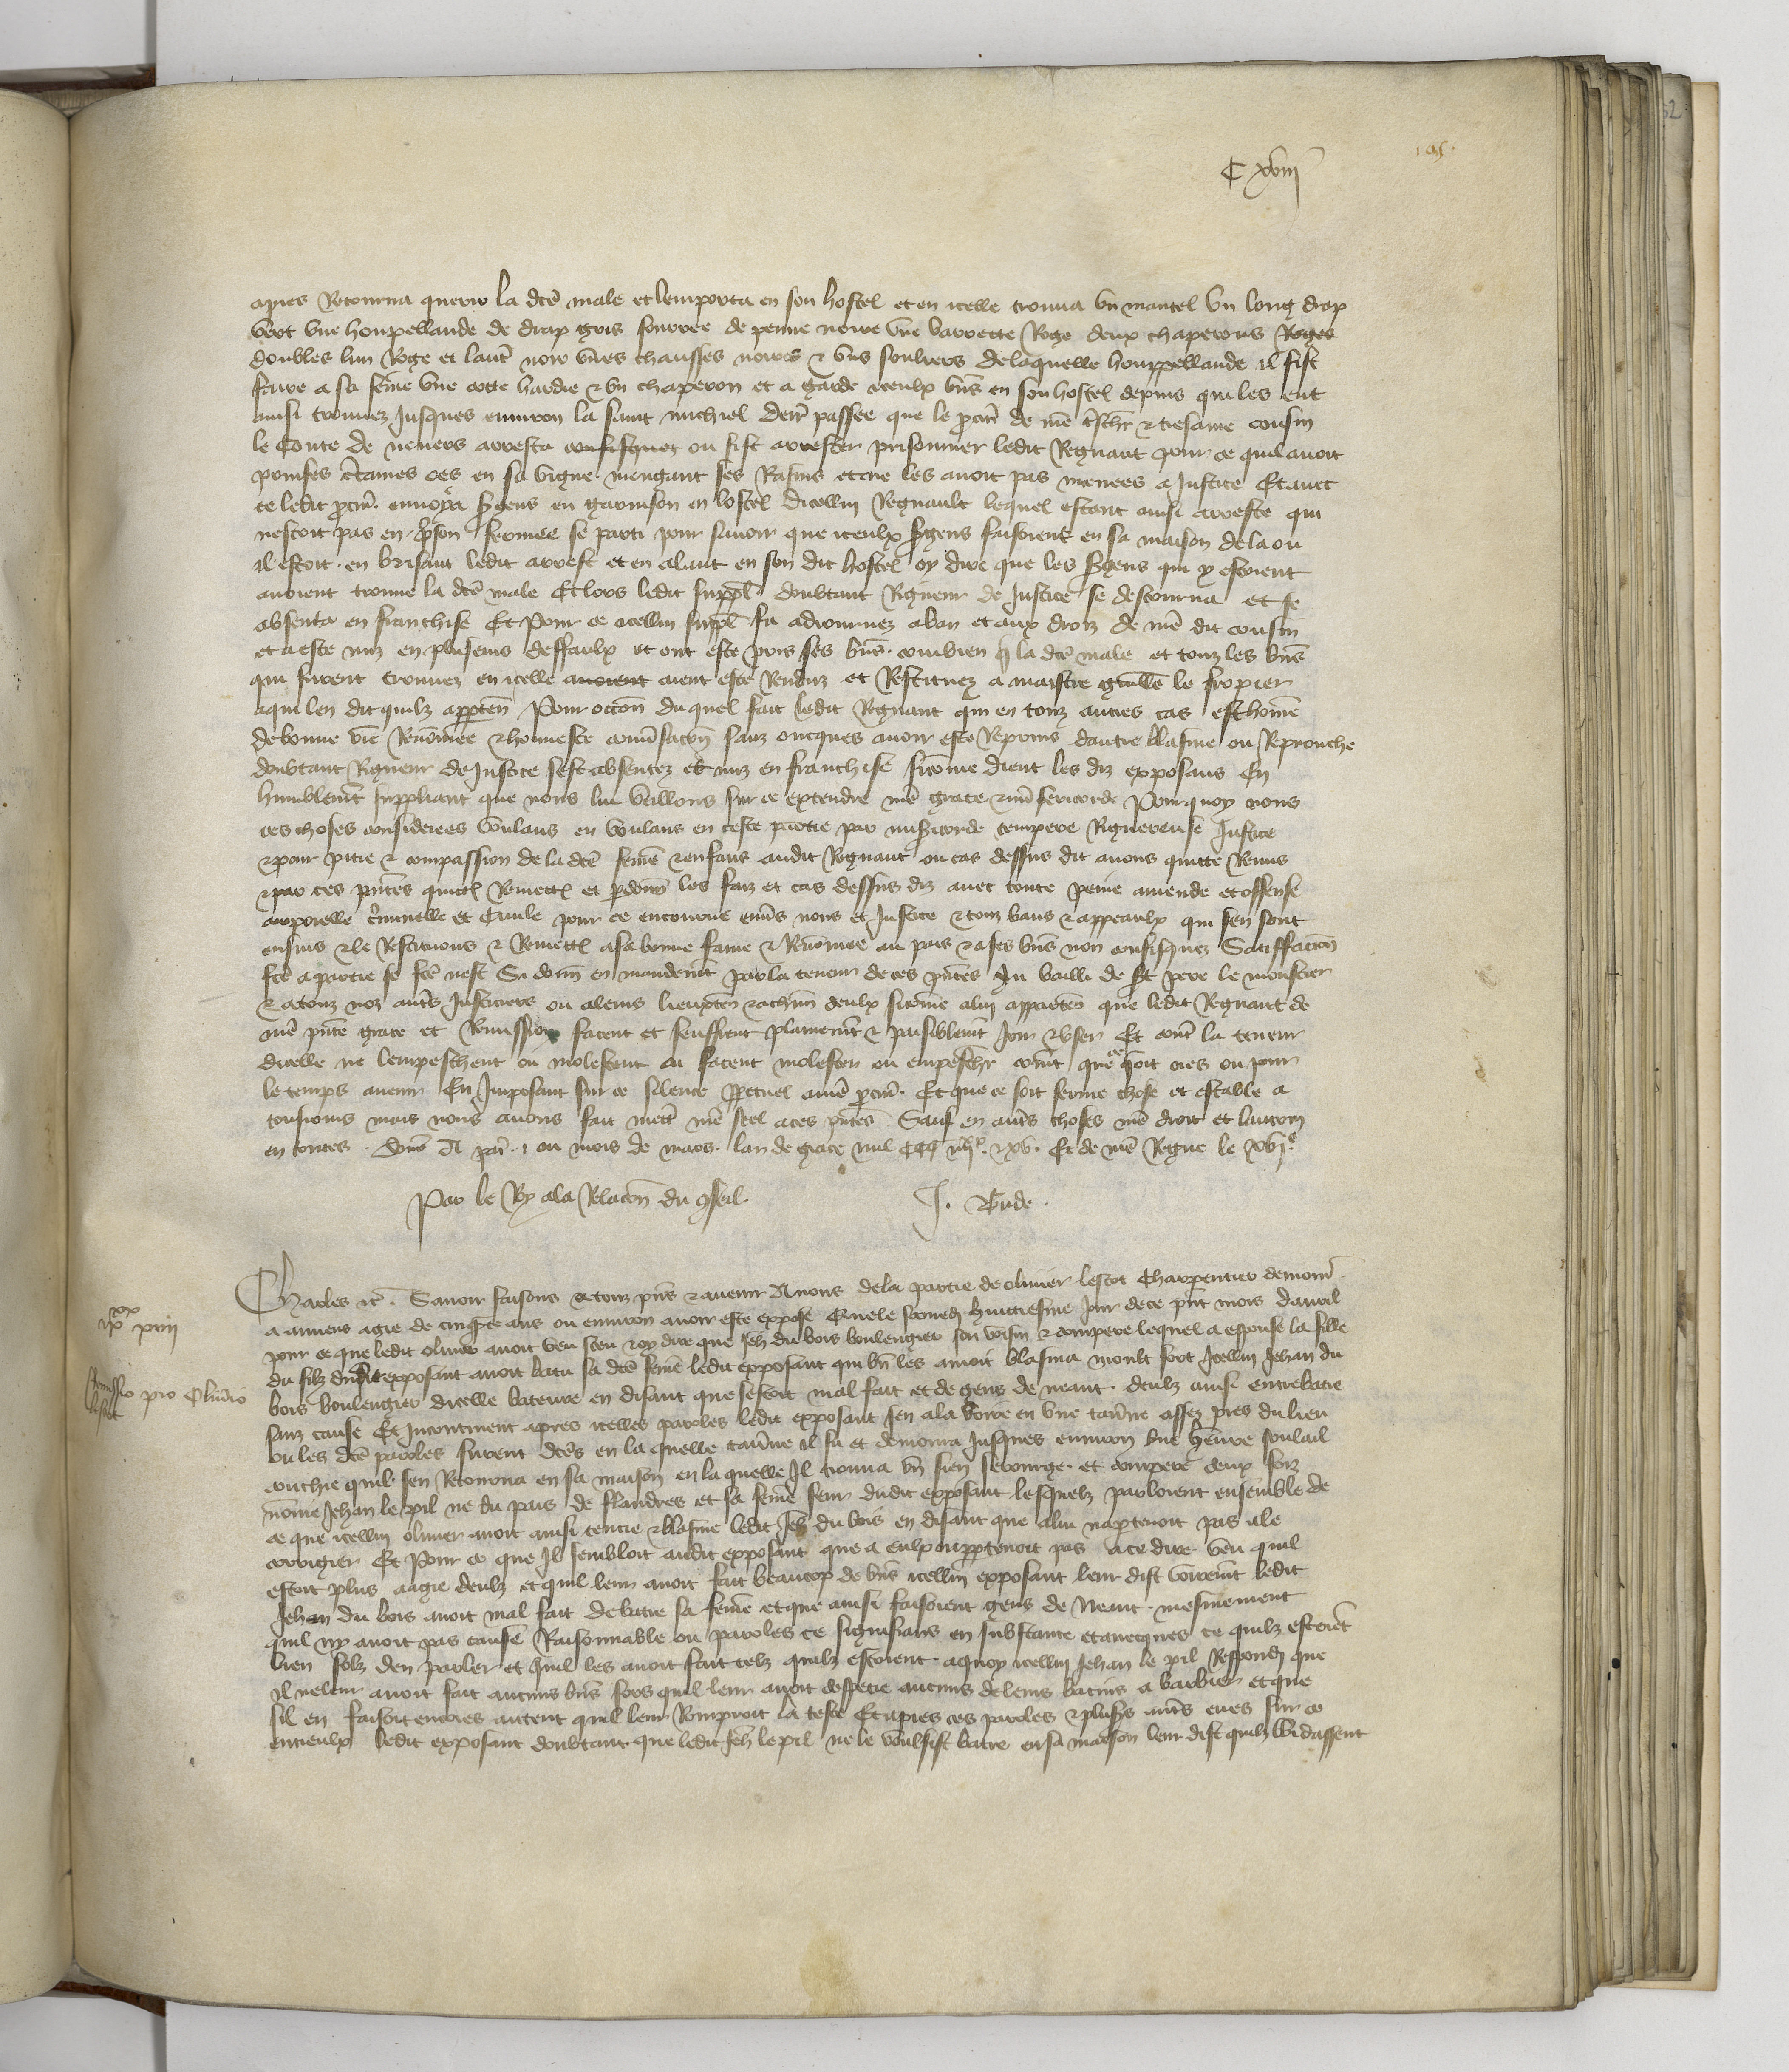 C xviii
apres Retourna querir la dcē male et lemporta en son hostel et en icelle trouva un mantel un long drap
vert une houpellande de drap gris fourree de penne noire une barrette Roge deux chaperons Roges
doubles lun Roge et lautr noir unes chausses noires et uns soulers de laquelle houppellande il fist
faire a sa fēme une cotte hardie et un chaperon et a garde iceulx bns en son hostel depuis quil les eut
ainsi trouvez Jusques environ la saint michiel derr passee que le procur de nre tschr et tresame cousin
le Conte de nevers arresta ou fist arrester prisonnier ledit Regnaut pour ce quil avoit
prinses ctaines oes en sa vigne mengant ses Rasins et ne les avoit pas menees a Justice Et avec
ce ledit pcur envoya Sgens en garnison en lostel dicellui Regnault lequel estant ainsi arreste qui
nestoit pas en prison fermee se parti pour savoir que iceulx Sgens faisoient en sa maison de la ou
il estoit en brisant ledit arrest et en alant en son dit hostel oy dire que les Sgens qui y estoient
avoient trouve la dcē male Et lors ledit suppl doubtant Rigueur de Justice se destourna et se
absenta en franchise Et Pour ce icellui suppl fu adiournez a ban et aux droiz de nre dit cousin
et a este mis en plusieurs deffaulx et ont este pris ses bns combien q la dcē male et touz les bns
qui furent trouvez en icelle avoient aient este Renduz et Restituez a maistre guille le fropier
a qui len dit quilz apptenn Pour occon du quel fait ledit Regnaut qui en touz autres cas est home
de bonne vie Renomee et honneste convsacon sanz oncques avoir este Reprins dautre blasme ou Reprouche
doubtant Rigueur de Justice sest absentez et mis en franchise sicome dient les diz exposans En
humblemt suppliant que nous lui vueillons sur ce extendre nre grace et misericorde Pourquoy nous
ces choses considerees voulans en voulans en ceste partie par misicorde tempere Riguereuse Justice
et pour pitie et compassion de la dcē feme et enfans audit Regnaut ou cas dessus dit avons quitte Remis
et par ces pntes quictt Remett et pdonn les faiz et cas dessus diz avec toute peine amende et offense
corporelle criminelle et Civile pour ce encourue envs nous et Justice et touz bans et appeaulx qui sen sont
ensuis et le Restituons et Remett a sa bonne fame et Renomee au pais et a ses bns non confisquez Satiffacion
fcē a partie se fcē nest Si donn en mandemt par la teneur de ces pntes Au bailli de St pere le monstier
et a touz noz autrs Justiciers ou a leurs lieuxten et a chun deulx sicome a lui apparten que ledit Regnaut de
nre pnte grace et Remission facent et seuffrent plainemt et paisiblemt Joir et user Et contr la teneur
dicelle ne lempeschent ou molestent ou facent molester ou empeschr comt que ce soit ores ou pour
le temps avenir En Imposant sur ce silence ppetuel a nre pcur Et que ce soit ferme chose et estable a
tousiours mais nous avons fait mectr nre scel a ces pntes Sauf en autrs choses nre droit et lautrui
en toutes Donē A par ou mois de mars lan de grace mil CCC iiiixx et xv Et de nre Regne le xvie
Par le Roy a la Relacon du conseil J. Bude
Charles etc. Savoir faisons a touz pns et avenir A nous de la partie de olivier lescot Charpentier demour
a amiens agie de cinqte ans ou environ avoir este expose Que le Samedi huictiesme Jour de ce pnt mois davril
pour ce que ledit olivier avoit veu sceu et oy dire que Jeh du bois boulengier son voisin et compere lequel a espouse la fille
du filz dudit exposant avoit batu sa dcē feme ledit exposant qui bn les amoit blasma moult fort Icellui Jehan du
bois boulengier dicelle bateure en disant que cestoit mal fait et de gens de neant deulz ainsi entrebatre
sanz cause Et Incontinent apres icelles paroles ledit exposant sen ala boire en une tavne assez pres du lieu
ou les dcēs paroles furent dcēs en la quelle tavne il fu et demoura Jusques environ une heure soulail
couchie quil sen Retourna en sa maison en la quelle Il trouva un sien serourge et compere deux foiz
nome Jehan le pil ne du pais de flandres et sa feme seur dudit exposant lesquelz parloient ensemble de
ce que icellui olivier avoit ainsi tencie et blasme ledit Jeh du bois en disant que a lui naptenoit pas a le
corrigier Et Pour ce que Il sembloit audit exposant que a eulx napptenoit pas a ce dire veu quil
estoit plus aagie deulz et quil leur avoit fait beaucop de bns icellui exposant leur dist voiremt ledit
Jehan du bois avoit mal fait de batre sa feme et que ainsi faisoient gens de Neant mesmement
quil ny avoit pas cause Raisonnable ou paroles ce signifians en substance et avecques ce quilz estoiet
bien folz den parler et quil les avoit fait telz quilz estoient a quoy icellui Jehan le pil Respondi que
il ne leur avoit fait aucuns bns fors quil leur avoit despecie aucuns de leurs bacins a barbier et que
sil en faisoit encores autent quil leur Romproit la teste Et apres ces paroles et plusrs autrs eues sur ce
entreulx ledit exposant doubtant que ledit Jeh le pil ne le voulsist batre en sa maison leur dist quilz widassent
ixxx xviii
Remissio pro Oliverio
lescot